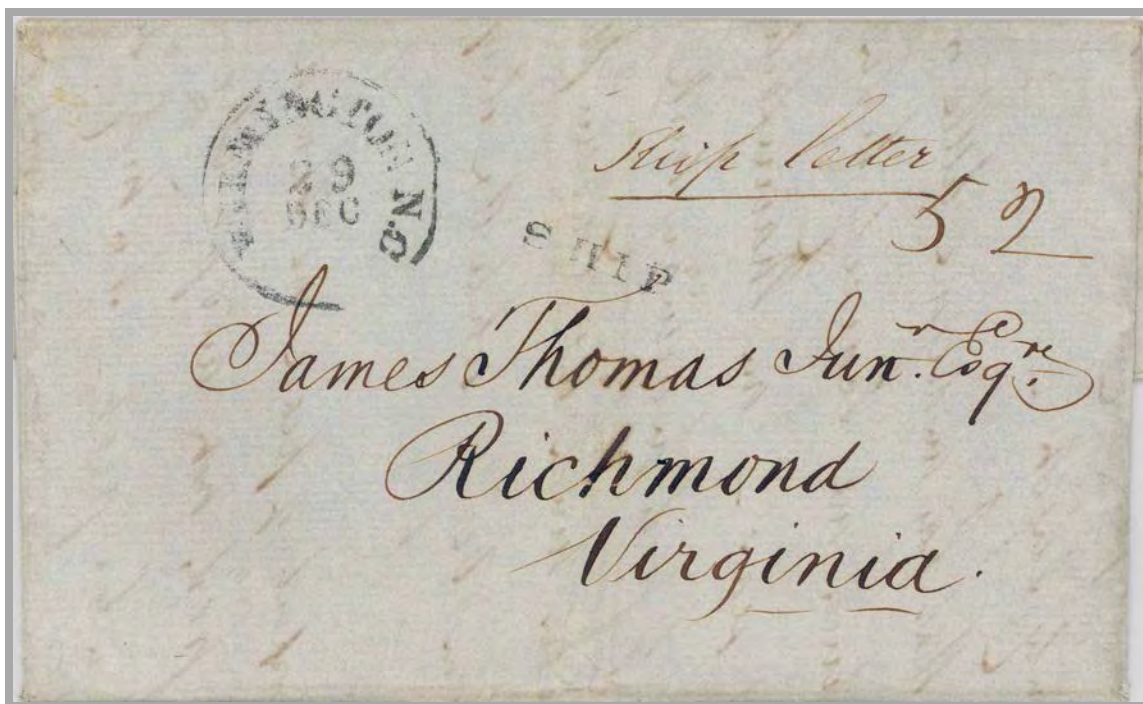 WILMINGTON N.C.
29
DEC
Ship letter
52
SHIP
James Thomas Junr. Esqre.
Richmond
Virginia.